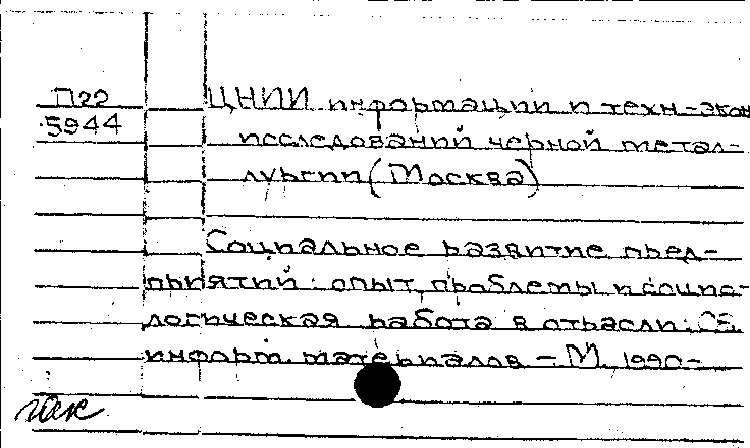 П22
5944
ЦНИИ информации и техн-экон
исследований черной метал-
лургии (Москва)
Социальное развитие пред-
приятий: опыт, проблемы и социо-
логическая работа в отрасли: Сб.
информ. материалов. – М., 1990–